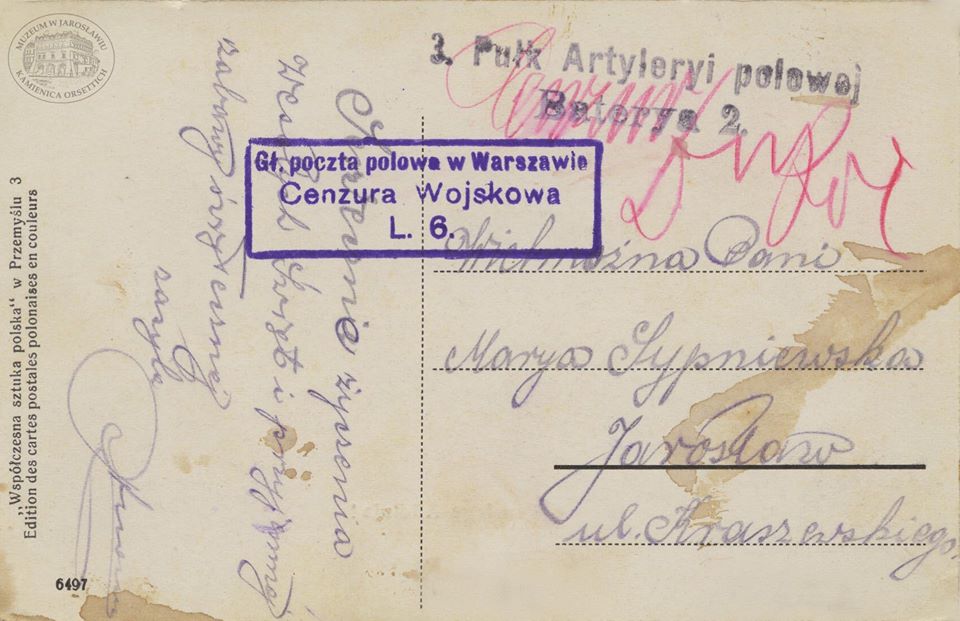 MUZEUM W JAROSŁAWIU
KAMIENICA ORSETTICH
3. Pułk Artyleryi polowej
Baterya 2.
Gł. poczta polowa w Warszawie
Cenzura Wojskowa
L. 6.
Wielmożna Pani
Marya Sypniewska
Jarosław
ul. Kraszewskiego
Serdeczne życzenia
Wesołych Świąt i przyjemnej
zabawy świątecznej
zasyła
„Współczesna sztuka polska“ w Przemyślu 3
Edition des cartes postales polonaises en couleurs
6497